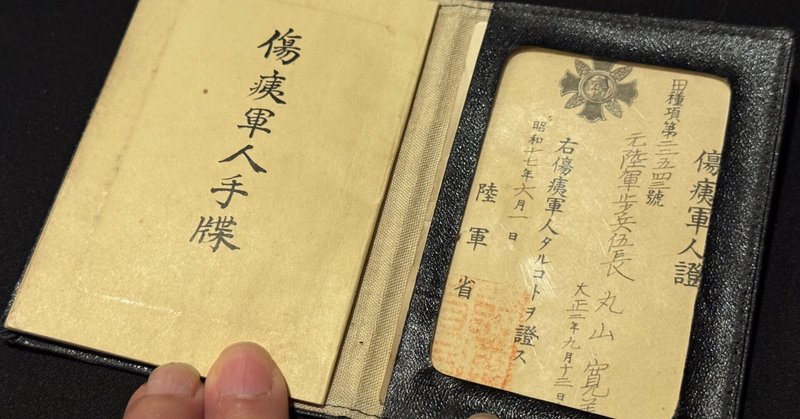 傷痍軍人手牒
傷痍軍人證
甲種項第三五四三號
元陸軍歩兵伍長 丸山 寛
大正二年九月十三日
右傷痍軍人タルコトヲ證ス
昭和十七年六月一日
陸軍省